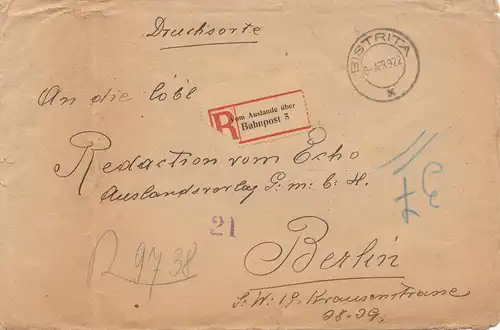 Drucksorte
BISTRITA
8-APR922
An die löbl
R
Vom Auslande über
Bahnpost 5
Redaction vom Echo
Auslandsverlag G. m. b. H.
21
R 9738
Berlin
S. W. 19. Krausenstrasse
38-39.